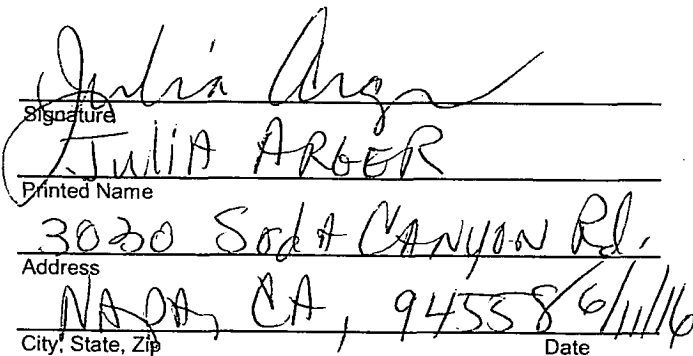 Julia Arger
Signature
JuliA ARGER
Printed Name
3030 SodA CANYON Rd.
Address
NAPA, CA, 94558 6/11/16
City, State, Zip Date